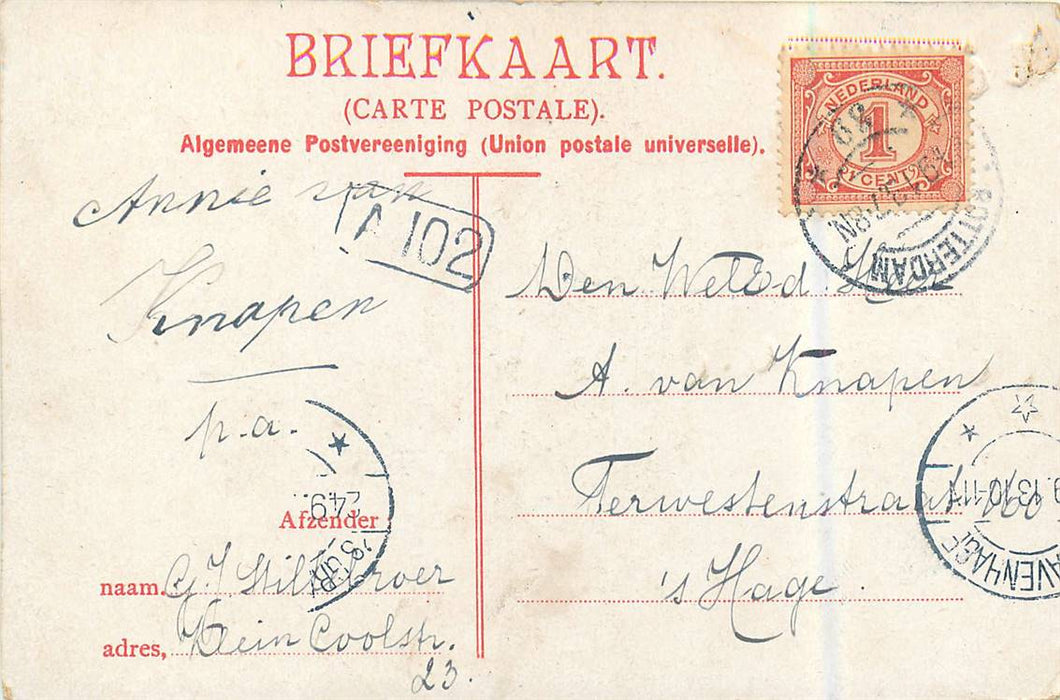 BRIEFKAART.
(CARTE POSTALE).
Algemeene Postvereeniging (Union postale universelle).
NEDERLAND
1
CENT
ROTTERDAM
Annie van
Knapen
A 102
p.a.
Den WelEd. Heer
A. van Knapen
Terwestenstraat
's Hage.
Afzender
naam. G. J.
adres, Klein Coolstr.
23.